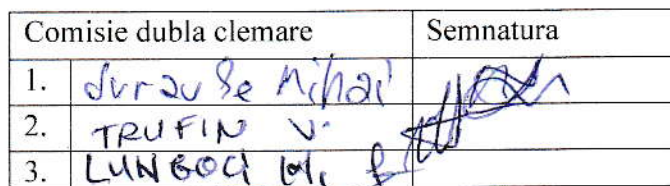 Comisie dubla clemare Semnatura
1. Mihai
2. TRUFIN V.
3. LUNGOCI